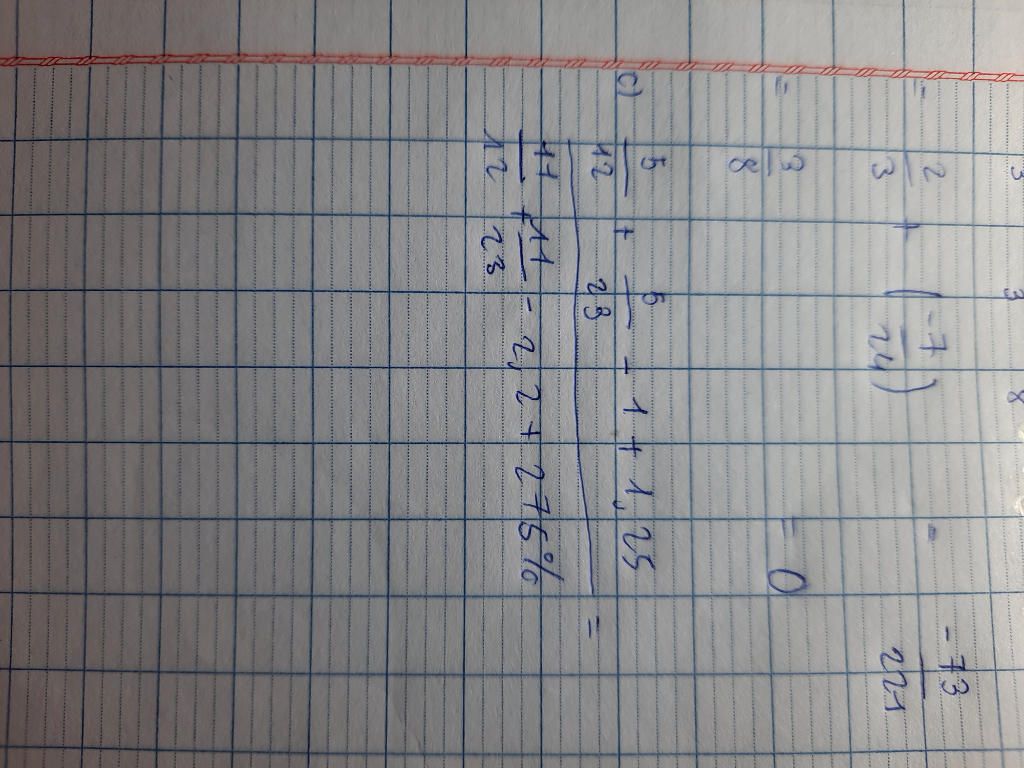 3 3 8
= 2/3 + (-7/24) - -73/221
= 3/8 = 0
c) 5/12 + 5/23 - 1 + 1,25 =
11/12 + 11/23 - 2,2 + 275%